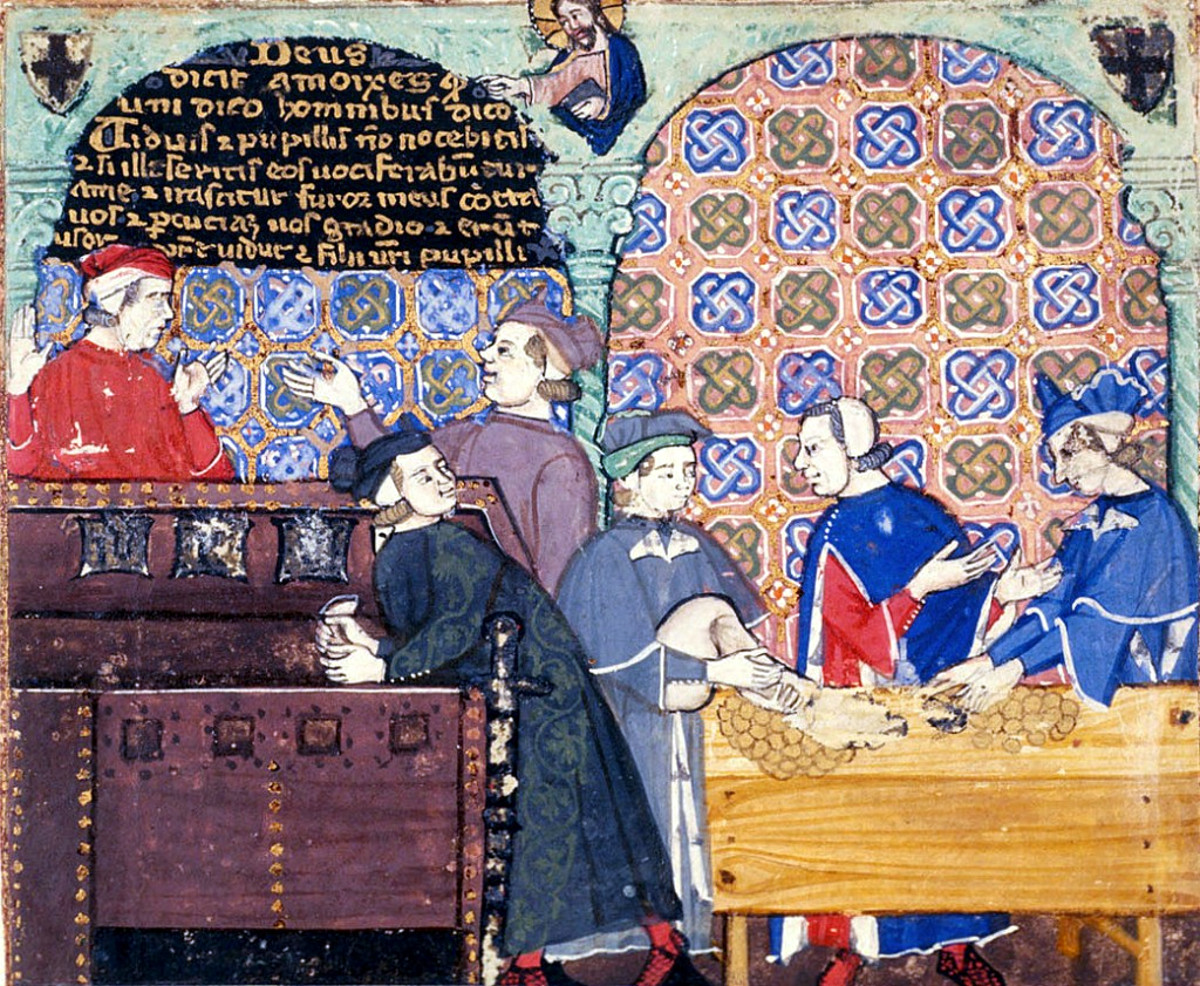 Deus
dicit amoixes q
uni dico homnibus dico
Uiduis ⁊ pupillis nõ nocebitis
⁊ si illeseritis eos uociferabũtur
ame ⁊ irascitur furor meus cõtra
uos ⁊ ꝑcuciaꝫ uos gladio ⁊ erũt
uidue ⁊ filii ur̃i pupilli